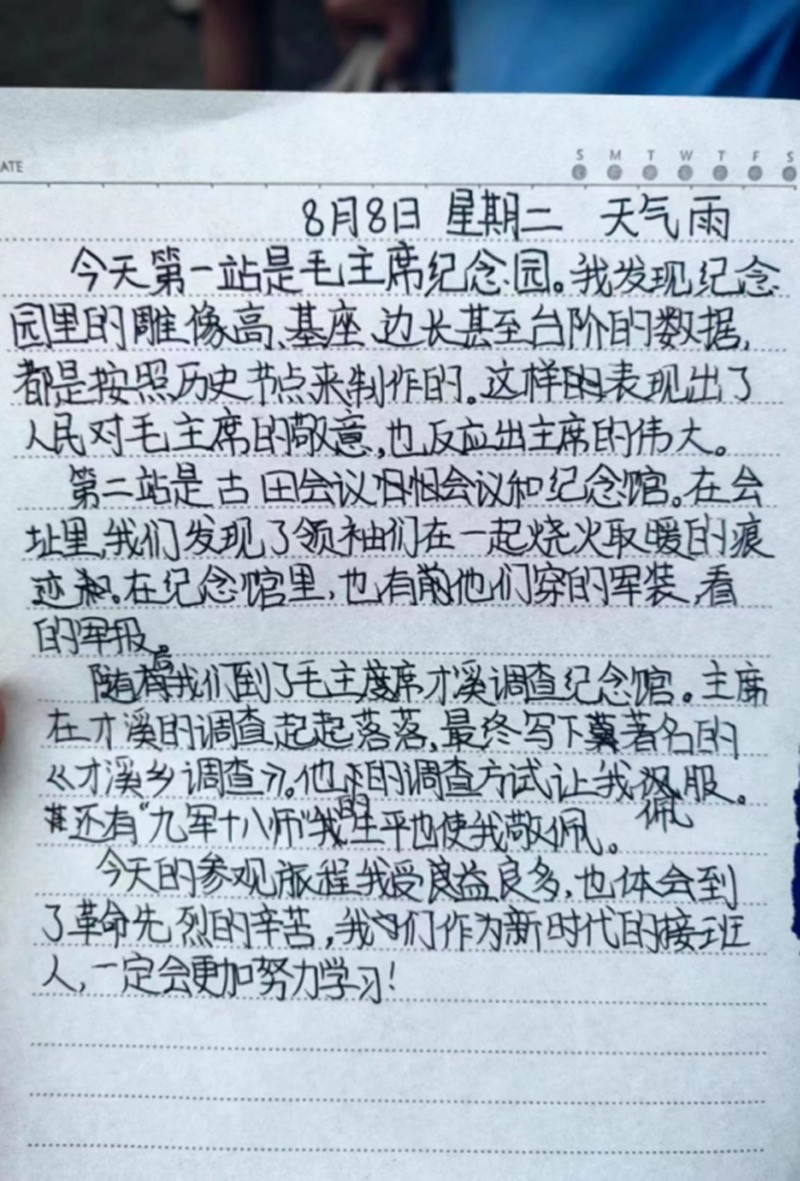 ATE
S M T W T F S
8月8日 星期二 天气雨
今天第一站是毛主席纪念园。我发现纪念
园里的雕像高、基座、边长甚至台阶的数据,
都是按照历史节点来制作的。这样的表现出了
人民对毛主席的敬意,也反应出主席的伟大。
第二站是古田会议旧址会议和纪念馆。在会
址里,我们发现了领袖们在一起烧火取暖的痕
迹。在纪念馆里,也有前他们穿的军装,看
的军报。
随后我们到了毛主席才溪调查纪念馆。主席
在才溪的调查起起落落,最终写下著名的
《才溪乡调查》。他的调查方试让我佩服。
还有“九军十八师”的生平也使我敬佩。
今天的参观旅程我受良益良多,也体会到
了革命先烈的辛苦,我们作为新时代的接班
人,一定会更加努力学习!